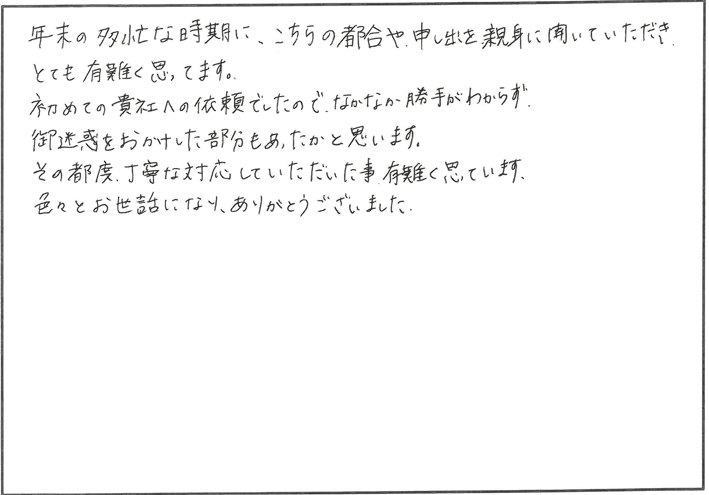 年末の多忙な時期に、こちらの都合や、申し出を親身に聞いていただき、
とても有難く思ってます。
初めての貴社への依頼でしたので、なかなか勝手がわからず、
御迷惑をおかけした部分もあったかと思います。
その都度、丁寧な対応していただいた事、有難く思ています、
色々とお世話になり、ありがとうございました。